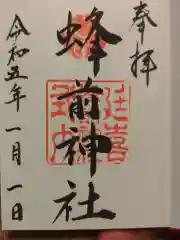 奉拝
蜂前神社
令和五年一月一日